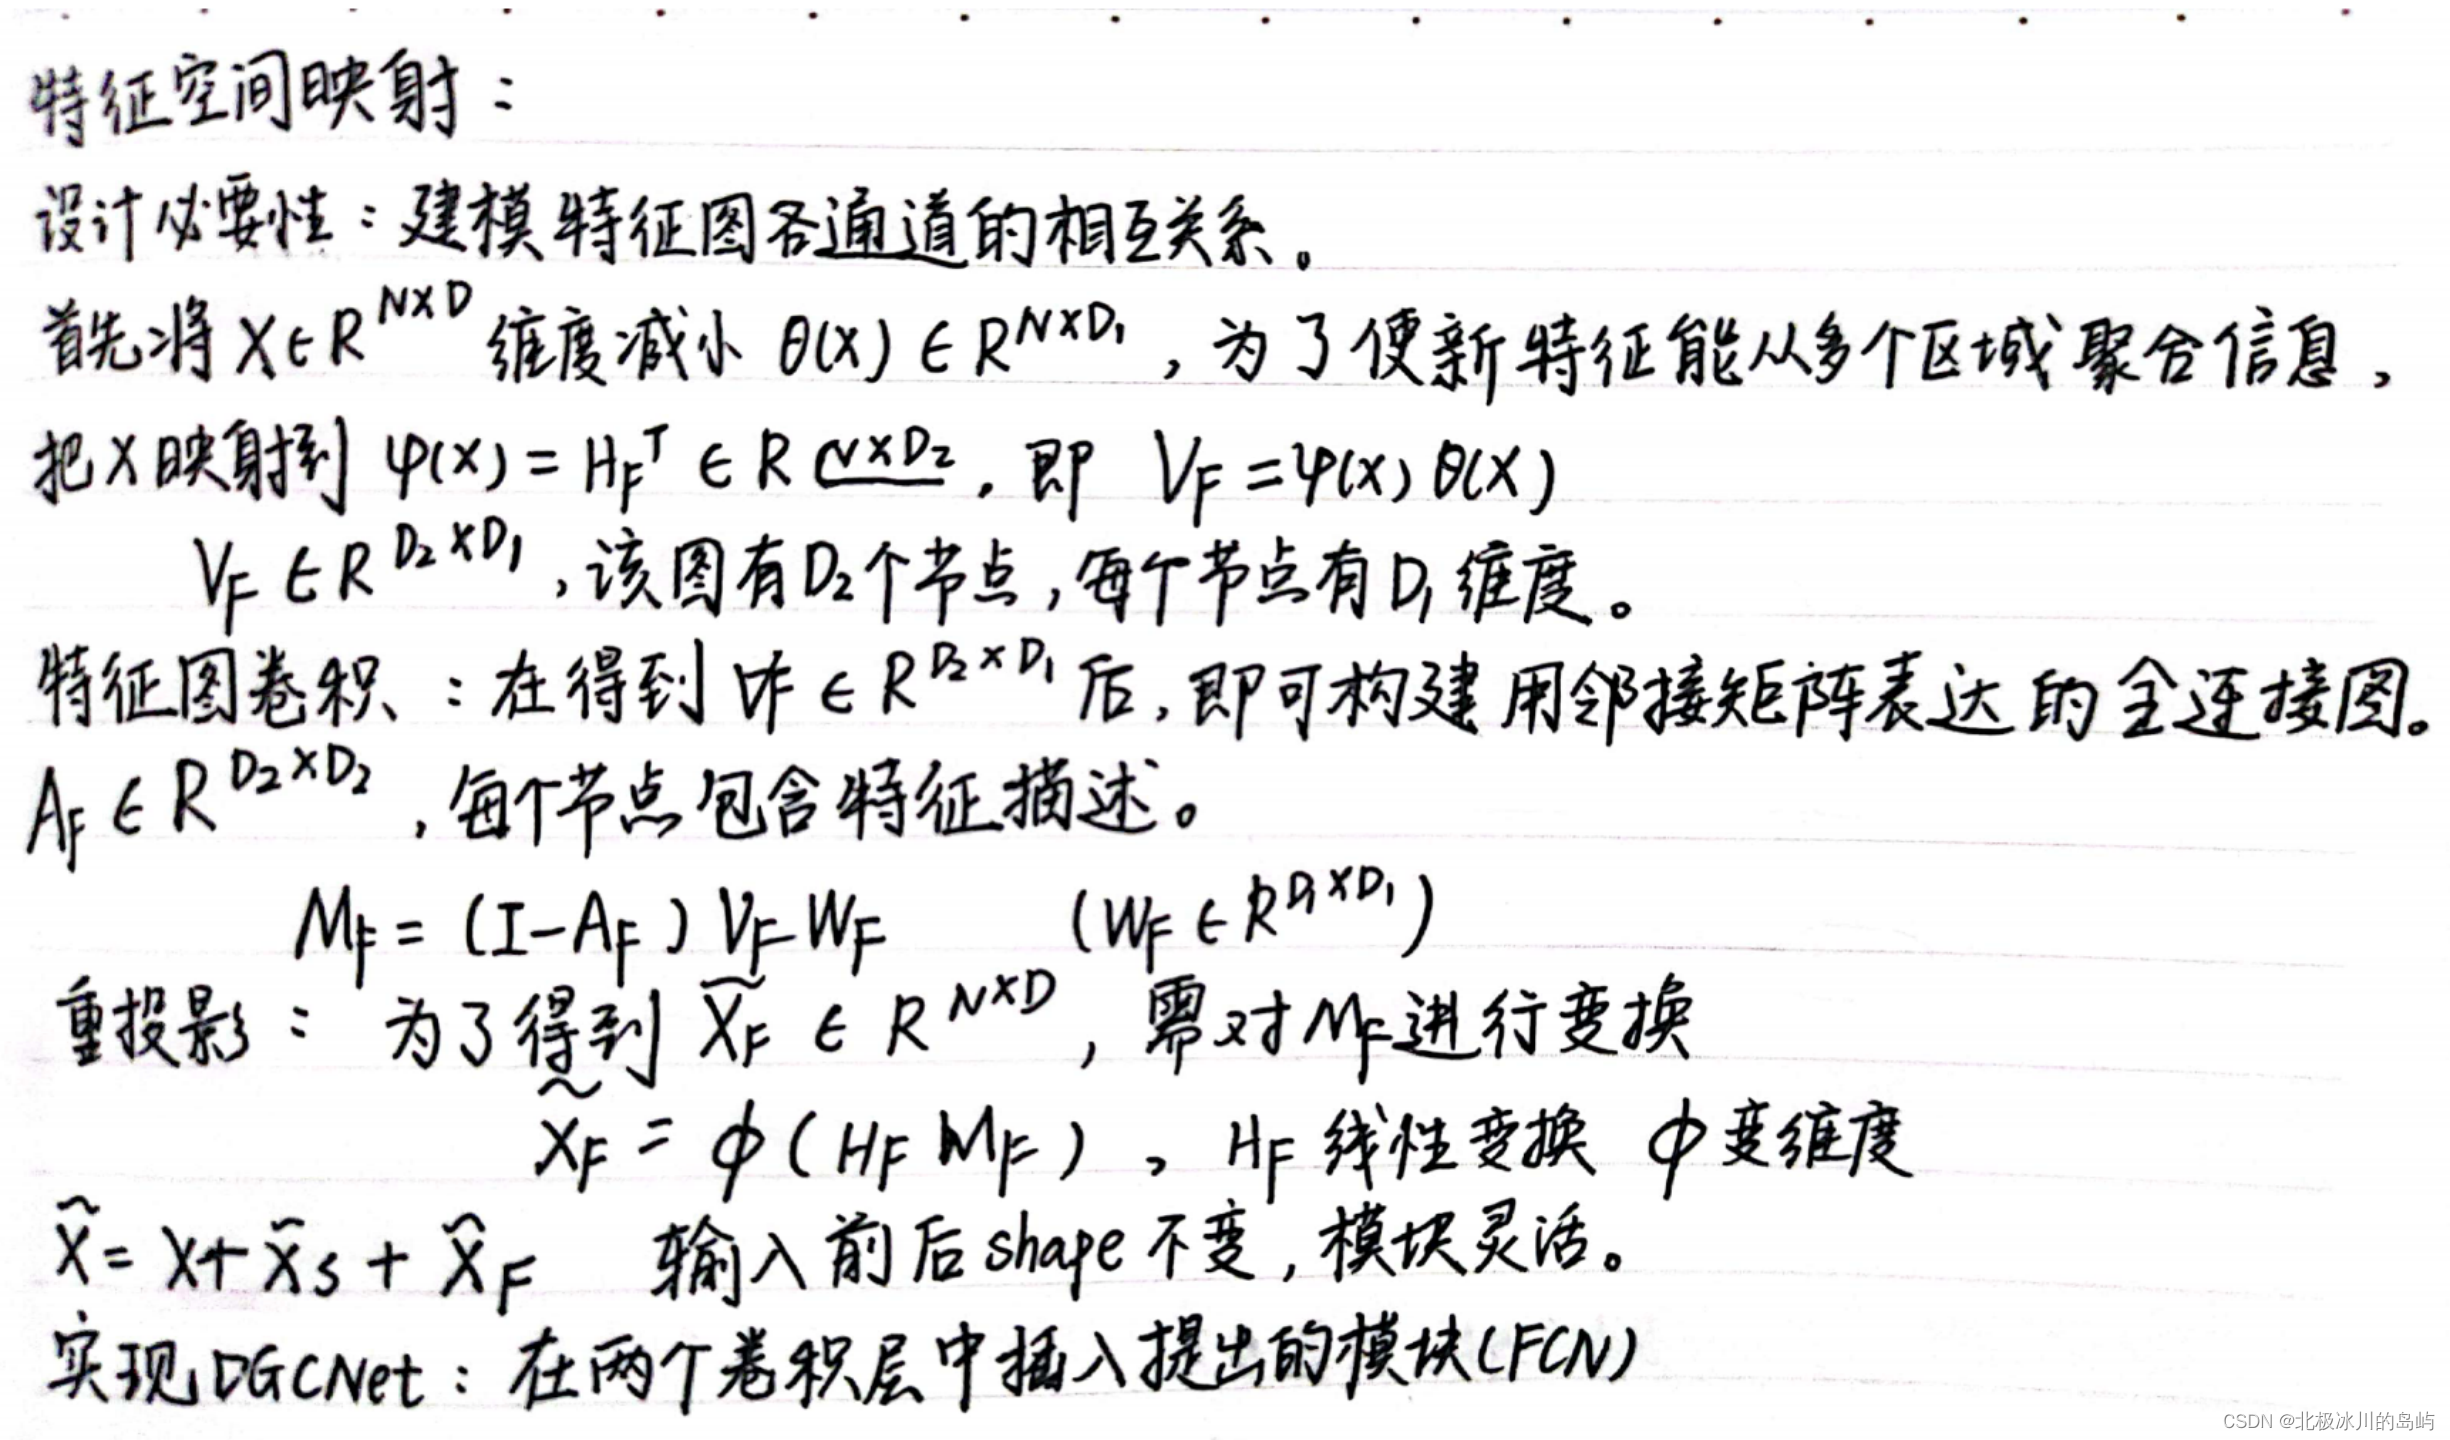 特征空间映射：
设计必要性：建模特征图各通道的相互关系。
首先将 X∈R^{N×D} 维度减小 θ(x)∈R^{N×D₁}，为了使新特征能从多个区域聚合信息，
把X映射到 φ(x) = H_F^T ∈ R^{N×D₂}，即 V_F = φ(x) θ(x)
V_F ∈ R^{D₂×D₁}，该图有D₂个节点，每个节点有D₁维度。
特征图卷积：在得到 V_F ∈ R^{D₂×D₁} 后，即可构建用邻接矩阵表达的全连接图。
A_F ∈ R^{D₂×D₂}，每个节点包含特征描述。
M_F = (I-A_F) V_F W_F (W_F ∈ R^{D₁×D₁})
重投影：为了得到 X̃_F ∈ R^{N×D}，需对M_F进行变换
X̃_F = ϕ(H_F M_F)，H_F 线性变换 ϕ变维度
X̃ = X + X̃_S + X̃_F 输入前后shape不变，模块灵活。
实现DGCNet：在两个卷积层中插入提出的模块(FCN)
CSDN @北极冰川的岛屿